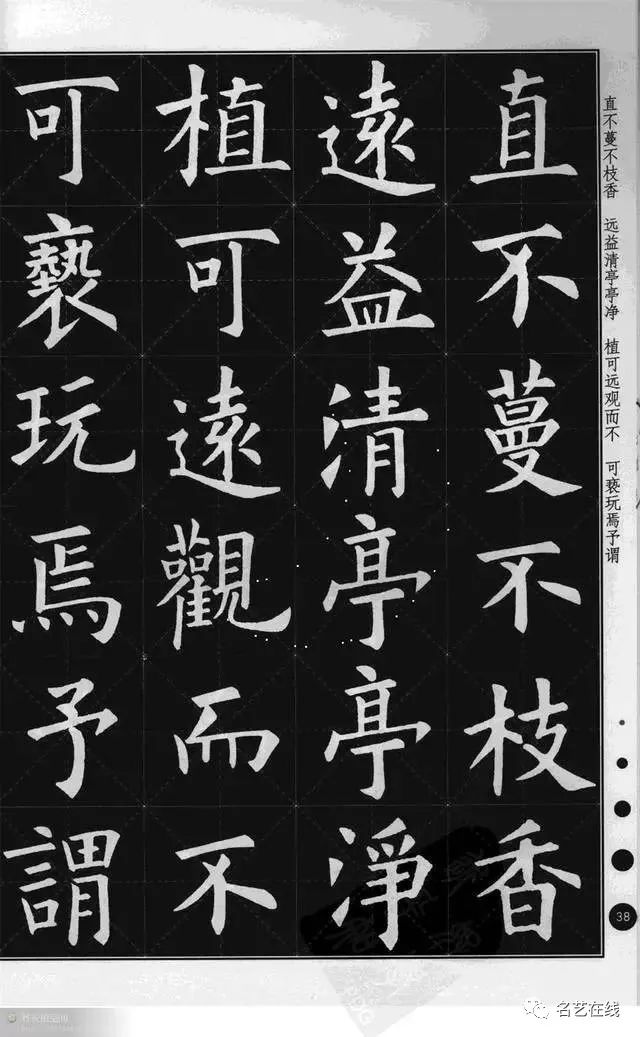 直不蔓不枝香
遠益清亭亭淨
植可遠觀而不
可褻玩焉予謂
直不蔓不枝香 远益清亭亭净 植可远观而不 可亵玩焉予谓
38
名艺在线